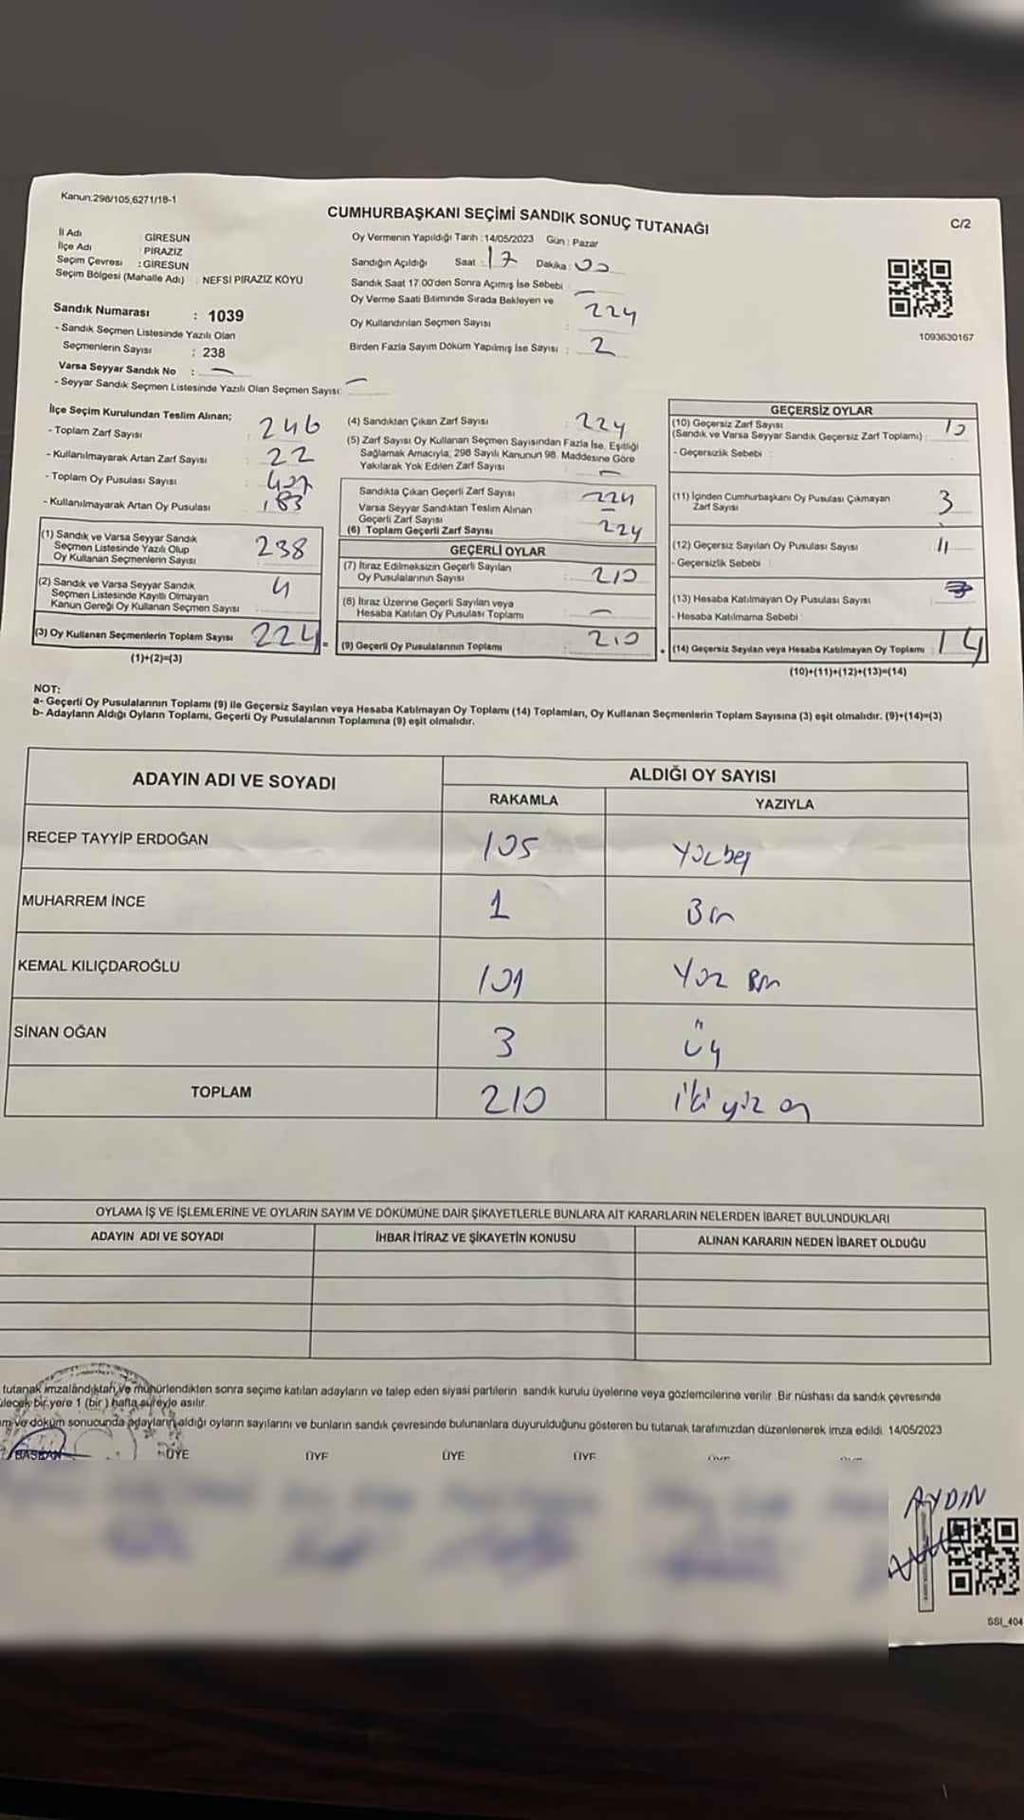 Kanun:298/105,6271/18-1
CUMHURBAŞKANI SEÇİMİ SANDIK SONUÇ TUTANAĞI
C/2
İl Adı GİRESUN
İlçe Adı PİRAZİZ
Seçim Çevresi : GİRESUN
Seçim Bölgesi (Mahalle Adı) : NEFSİ PİRAZİZ KÖYÜ
Sandık Numarası : 1039
- Sandık Seçmen Listesinde Yazılı Olan
Seçmenlerin Sayısı : 238
Varsa Seyyar Sandık No : —
- Seyyar Sandık Seçmen Listesinde Yazılı Olan Seçmen Sayısı: —
Oy Vermenin Yapıldığı Tarih : 14/05/2023 Gün : Pazar
Sandığın Açıldığı Saat : 17 Dakika : 00
Sandık Saat 17.00'den Sonra Açımış İse Sebebi —
Oy Verme Saati Bitiminde Sırada Bekleyen ve
Oy Kullandırılan Seçmen Sayısı : 224
Birden Fazla Sayım Döküm Yapılmış İse Sayısı : 2
1093630167
İlçe Seçim Kurulundan Teslim Alınan;
- Toplam Zarf Sayısı 246
- Kullanılmayarak Artan Zarf Sayısı 22
- Toplam Oy Pusulası Sayısı
- Kullanılmayarak Artan Oy Pusulası 183
(1) Sandık ve Varsa Seyyar Sandık
Seçmen Listesinde Yazılı Olup
Oy Kullanan Seçmenlerin Sayısı 238
(2) Sandık ve Varsa Seyyar Sandık
Seçmen Listesinde Kayıtlı Olmayan
Kanun Gereği Oy Kullanan Seçmen Sayısı 4
(3) Oy Kullanan Seçmenlerin Toplam Sayısı 224
(1)+(2)=(3)
(4) Sandıktan Çıkan Zarf Sayısı 224
(5) Zarf Sayısı Oy Kullanan Seçmen Sayısından Fazla İse, Eşitliği
Sağlamak Amacıyla, 298 Sayılı Kanunun 98. Maddesine Göre
Yakılarak Yok Edilen Zarf Sayısı —
Sandıkta Çıkan Geçerli Zarf Sayısı 224
Varsa Seyyar Sandıktan Teslim Alınan
Geçerli Zarf Sayısı —
(6) Toplam Geçerli Zarf Sayısı 224
GEÇERLİ OYLAR
(7) İtiraz Edilmeksizin Geçerli Sayılan
Oy Pusulalarının Sayısı : 210
(8) İtiraz Üzerine Geçerli Sayılan veya
Hesaba Katılan Oy Pusulası Toplamı : —
(9) Geçerli Oy Pusulalarının Toplamı : 210
GEÇERSİZ OYLAR
(10) Geçersiz Zarf Sayısı
(Sandık ve Varsa Seyyar Sandık Geçersiz Zarf Toplamı) :
- Geçersizlik Sebebi :
(11) İçinden Cumhurbaşkanı Oy Pusulası Çıkmayan
Zarf Sayısı 3
(12) Geçersiz Sayılan Oy Pusulası Sayısı 11
- Geçersizlik Sebebi :
(13) Hesaba Katılmayan Oy Pusulası Sayısı
- Hesaba Katılmama Sebebi :
(14) Geçersiz Sayılan veya Hesaba Katılmayan Oy Toplamı : 14
(10)+(11)+(12)+(13)=(14)
NOT:
a- Geçerli Oy Pusulalarının Toplamı (9) ile Geçersiz Sayılan veya Hesaba Katılmayan Oy Toplamı (14) Toplamları, Oy Kullanan Seçmenlerin Toplam Sayısına (3) eşit olmalıdır. (9)+(14)=(3)
b- Adayların Aldığı Oyların Toplamı, Geçerli Oy Pusulalarının Toplamına (9) eşit olmalıdır.
ADAYIN ADI VE SOYADI ALDIĞI OY SAYISI
RAKAMLA YAZIYLA
RECEP TAYYİP ERDOĞAN 105 Yüzbeş
MUHARREM İNCE 1 Bir
KEMAL KILIÇDAROĞLU 101 Yüz Bir
SİNAN OĞAN 3 Üç
TOPLAM 210 iki yüz on
OYLAMA İŞ VE İŞLEMLERİNE VE OYLARIN SAYIM VE DÖKÜMÜNE DAİR ŞİKAYETLERLE BUNLARA AİT KARARLARIN NELERDEN İBARET BULUNDUKLARI
ADAYIN ADI VE SOYADI İHBAR İTİRAZ VE ŞİKAYETİN KONUSU ALINAN KARARIN NEDEN İBARET OLDUĞU
tutanak imzalandıktan ve mühürlendikten sonra seçime katılan adayların ve talep eden siyasi partilerin sandık kurulu üyelerine veya gözlemcilerine verilir. Bir nüshası da sandık çevresinde
bir yere 1 (bir) hafta süreyle asılır.
ve döküm sonucunda adayların aldığı oyların sayılarını ve bunların sandık çevresinde bulunanlara duyurulduğunu gösteren bu tutanak tarafımızdan düzenlenerek imza edildi. 14/05/2023
BAŞKAN ÜYE ÜYE ÜYE ÜYE
AYDIN
SSI_404